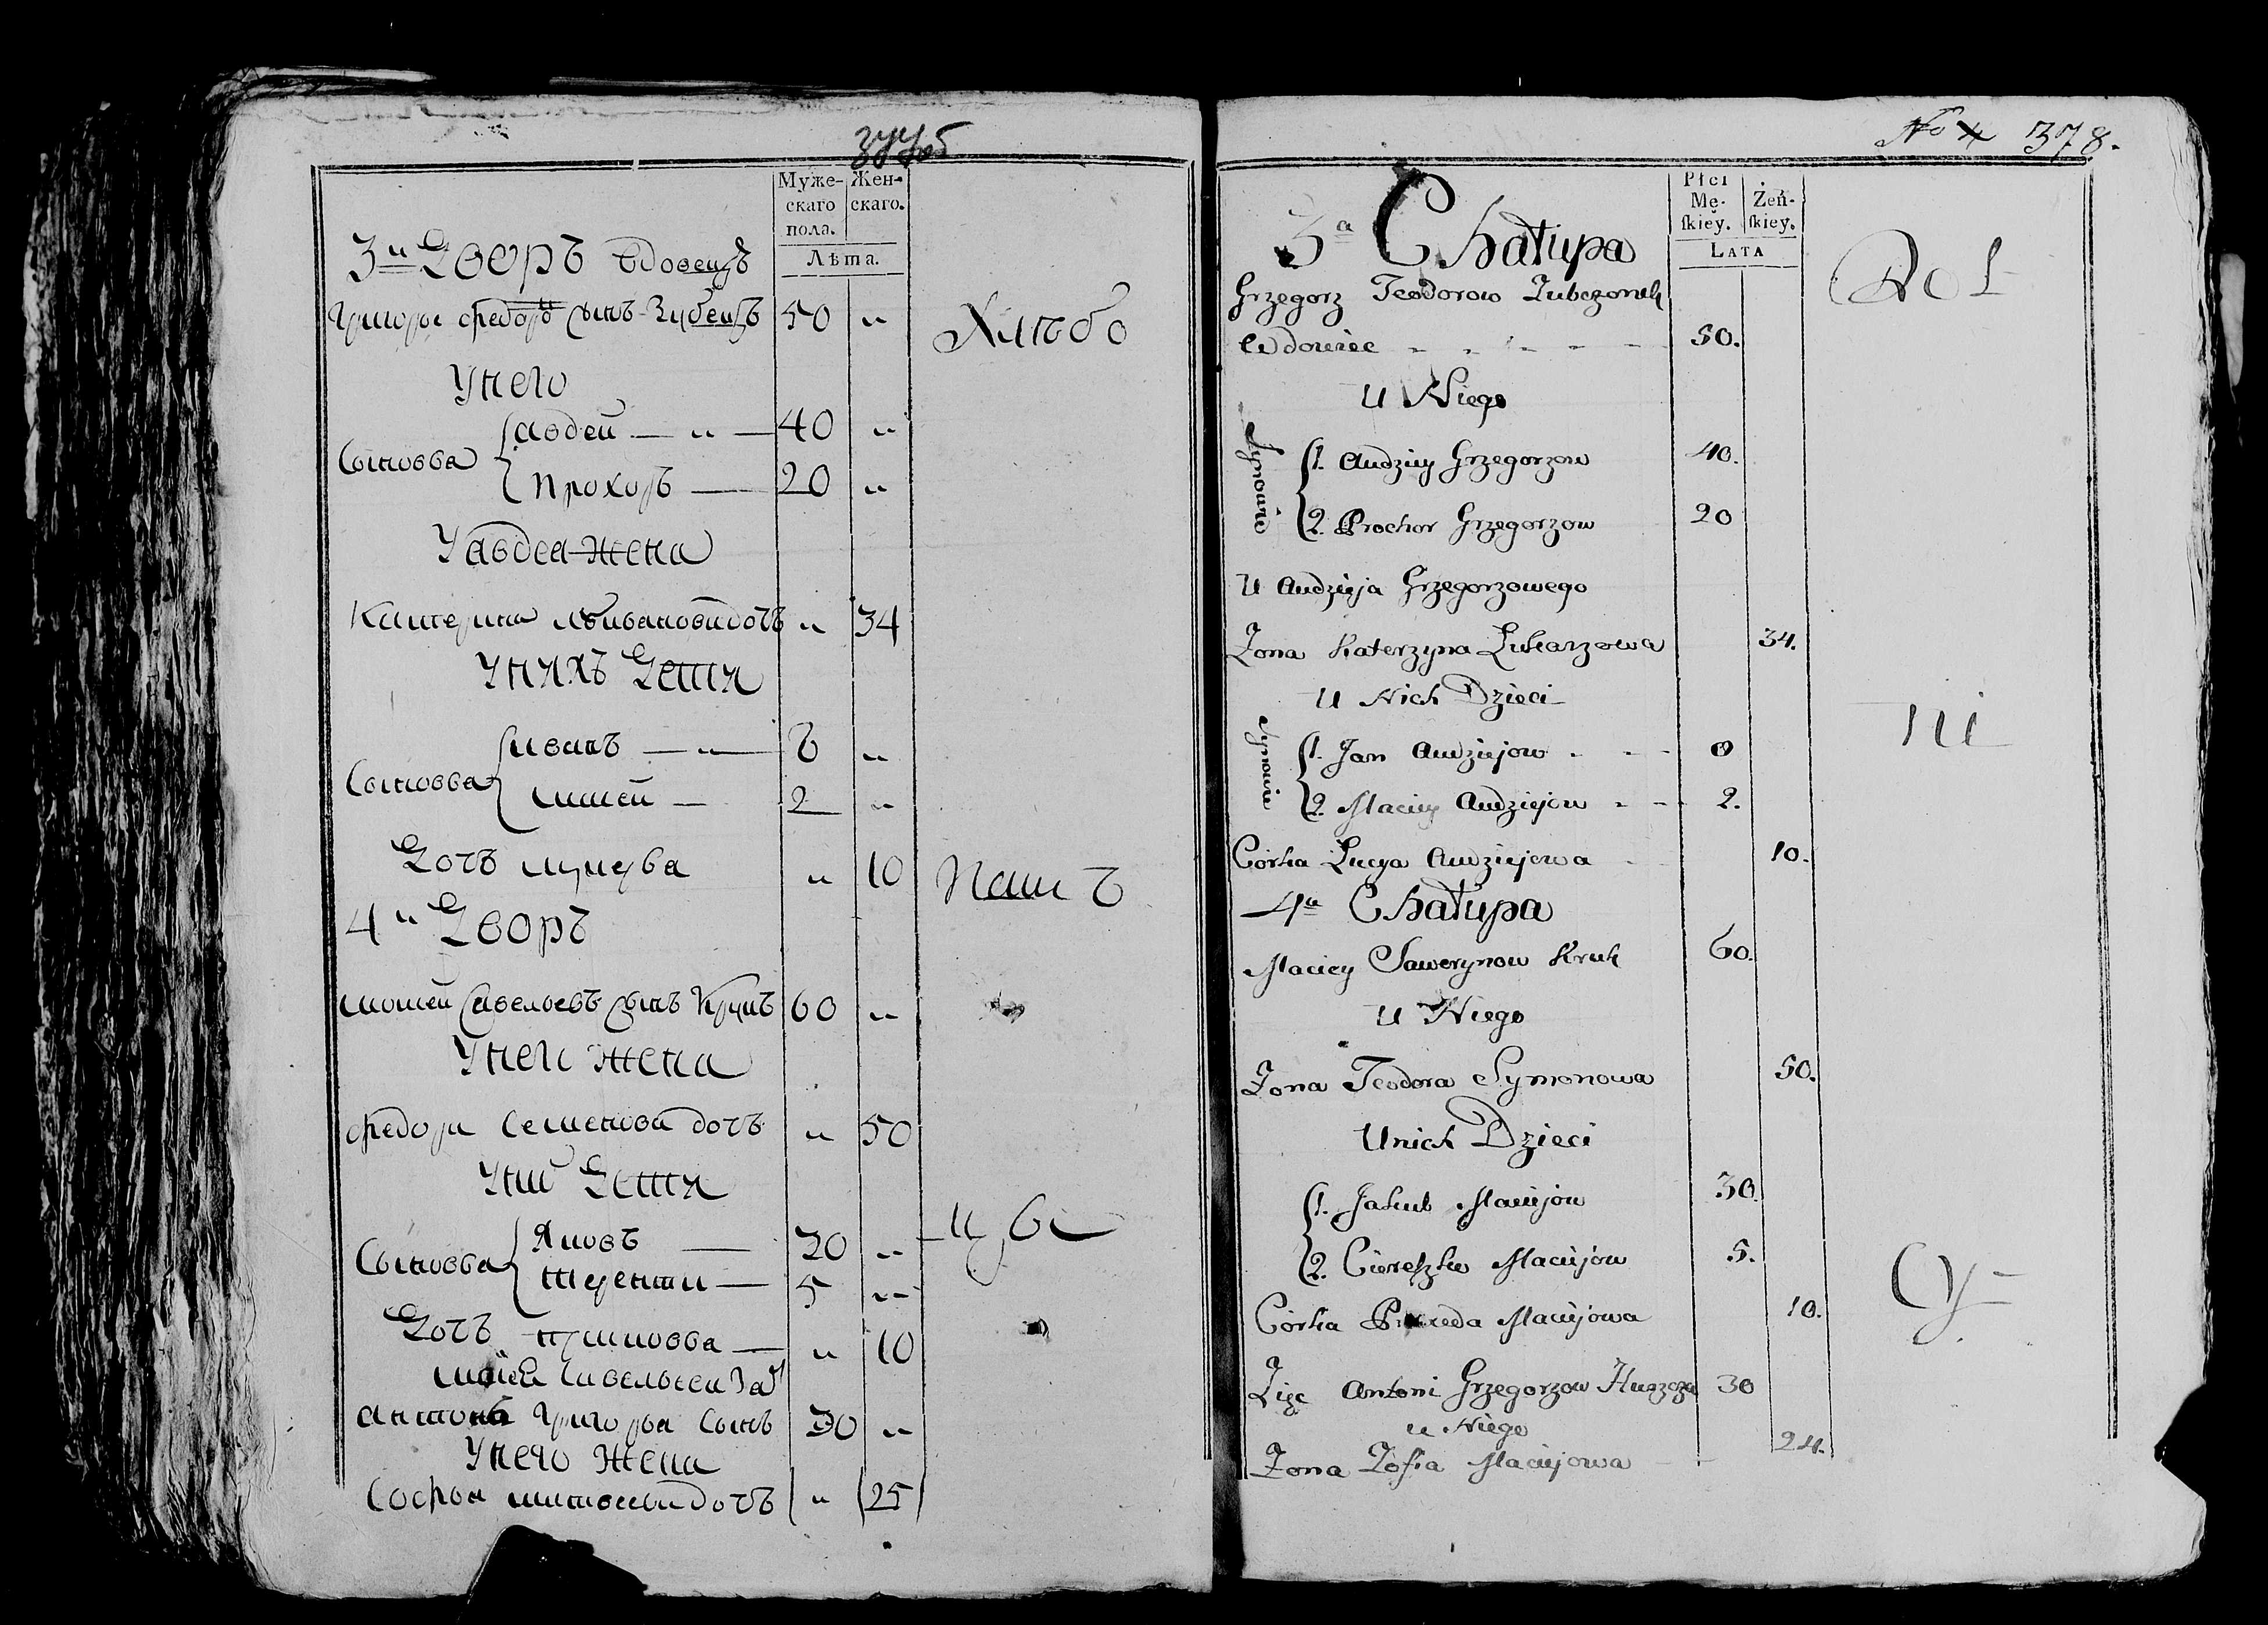 Муже-
скаго
пола.
Жен-
скаго.
Лѣта.
3й Дворъ вдовецъ
Григорьи Федоръ сынъ Зубецъ 50 "
Хлѣбо
У него
Сыновва
авдей — " — 40 "
Прохоръ — 20 "
У авдеа жена
Катерина ивановадочъ " 34
У нихъ Дети
Сыновва
иванъ — " — 8 "
матей — 2 "
Дочъ " 10
Паш
4й Дворъ
матей Савельевъ сынъ Крукъ 60 "
У него жена
Федора Семенова дочъ " 50
У них Дети
Сыновва
Яковъ — 30 "
Терентии — 5 "
Дочъ — " 10
Савельева зать
антонъ Григорьа сынъ 30 "
У него жена
Софья матвеевадочъ " 25
No 4 378.
Płci
Mę-
skiey.
Żeń-
skiey.
LATA
3a Chałupa
Rol
Grzegorz Teodorow Zubczonek
Wdowiec - - - - - 50.
U Niego
Synowie
1. Audziey Grzegorzow 40.
2. Prochor Grzegorzow 20
U Audzieja Grzegorzowego
Zona Katerzyna Łukarzowa 34.
U Nich Dzieci
ni
Synowie
1. Jan Audziejow - - - 8
2. Maciey Audziejow - - - 2.
Córka Lucya Audziejowa - 10.
4a Chałupa
Maciey Sawerynow Kruk 60.
U Niego
Zona Teodora Symonowa 50.
Unich Dzieci
1. Jakub Maciejow 30.
2. Cereszko Maciejow 5.
Cy
Córka Maciejowa 10.
Zięć Antoni Grzegorzow Huszcza 30
u Niego
Zona Zofia Maciejowa - - 24.